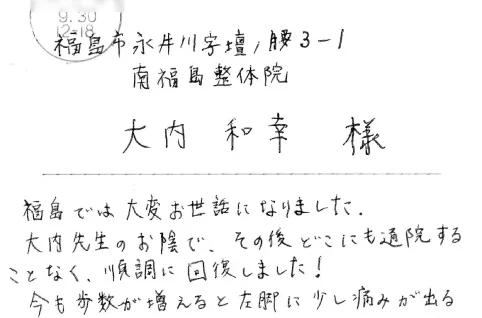 9.30
12-18
福島市永井川字壇ノ腰3-1
南福島整体院
大内 和幸 様
福島では大変お世話になりました.
大内先生のお陰で、その後どこにも通院する
ことなく、順調に回復しました!
今も歩数が増えると左脚に少し痛みが出る